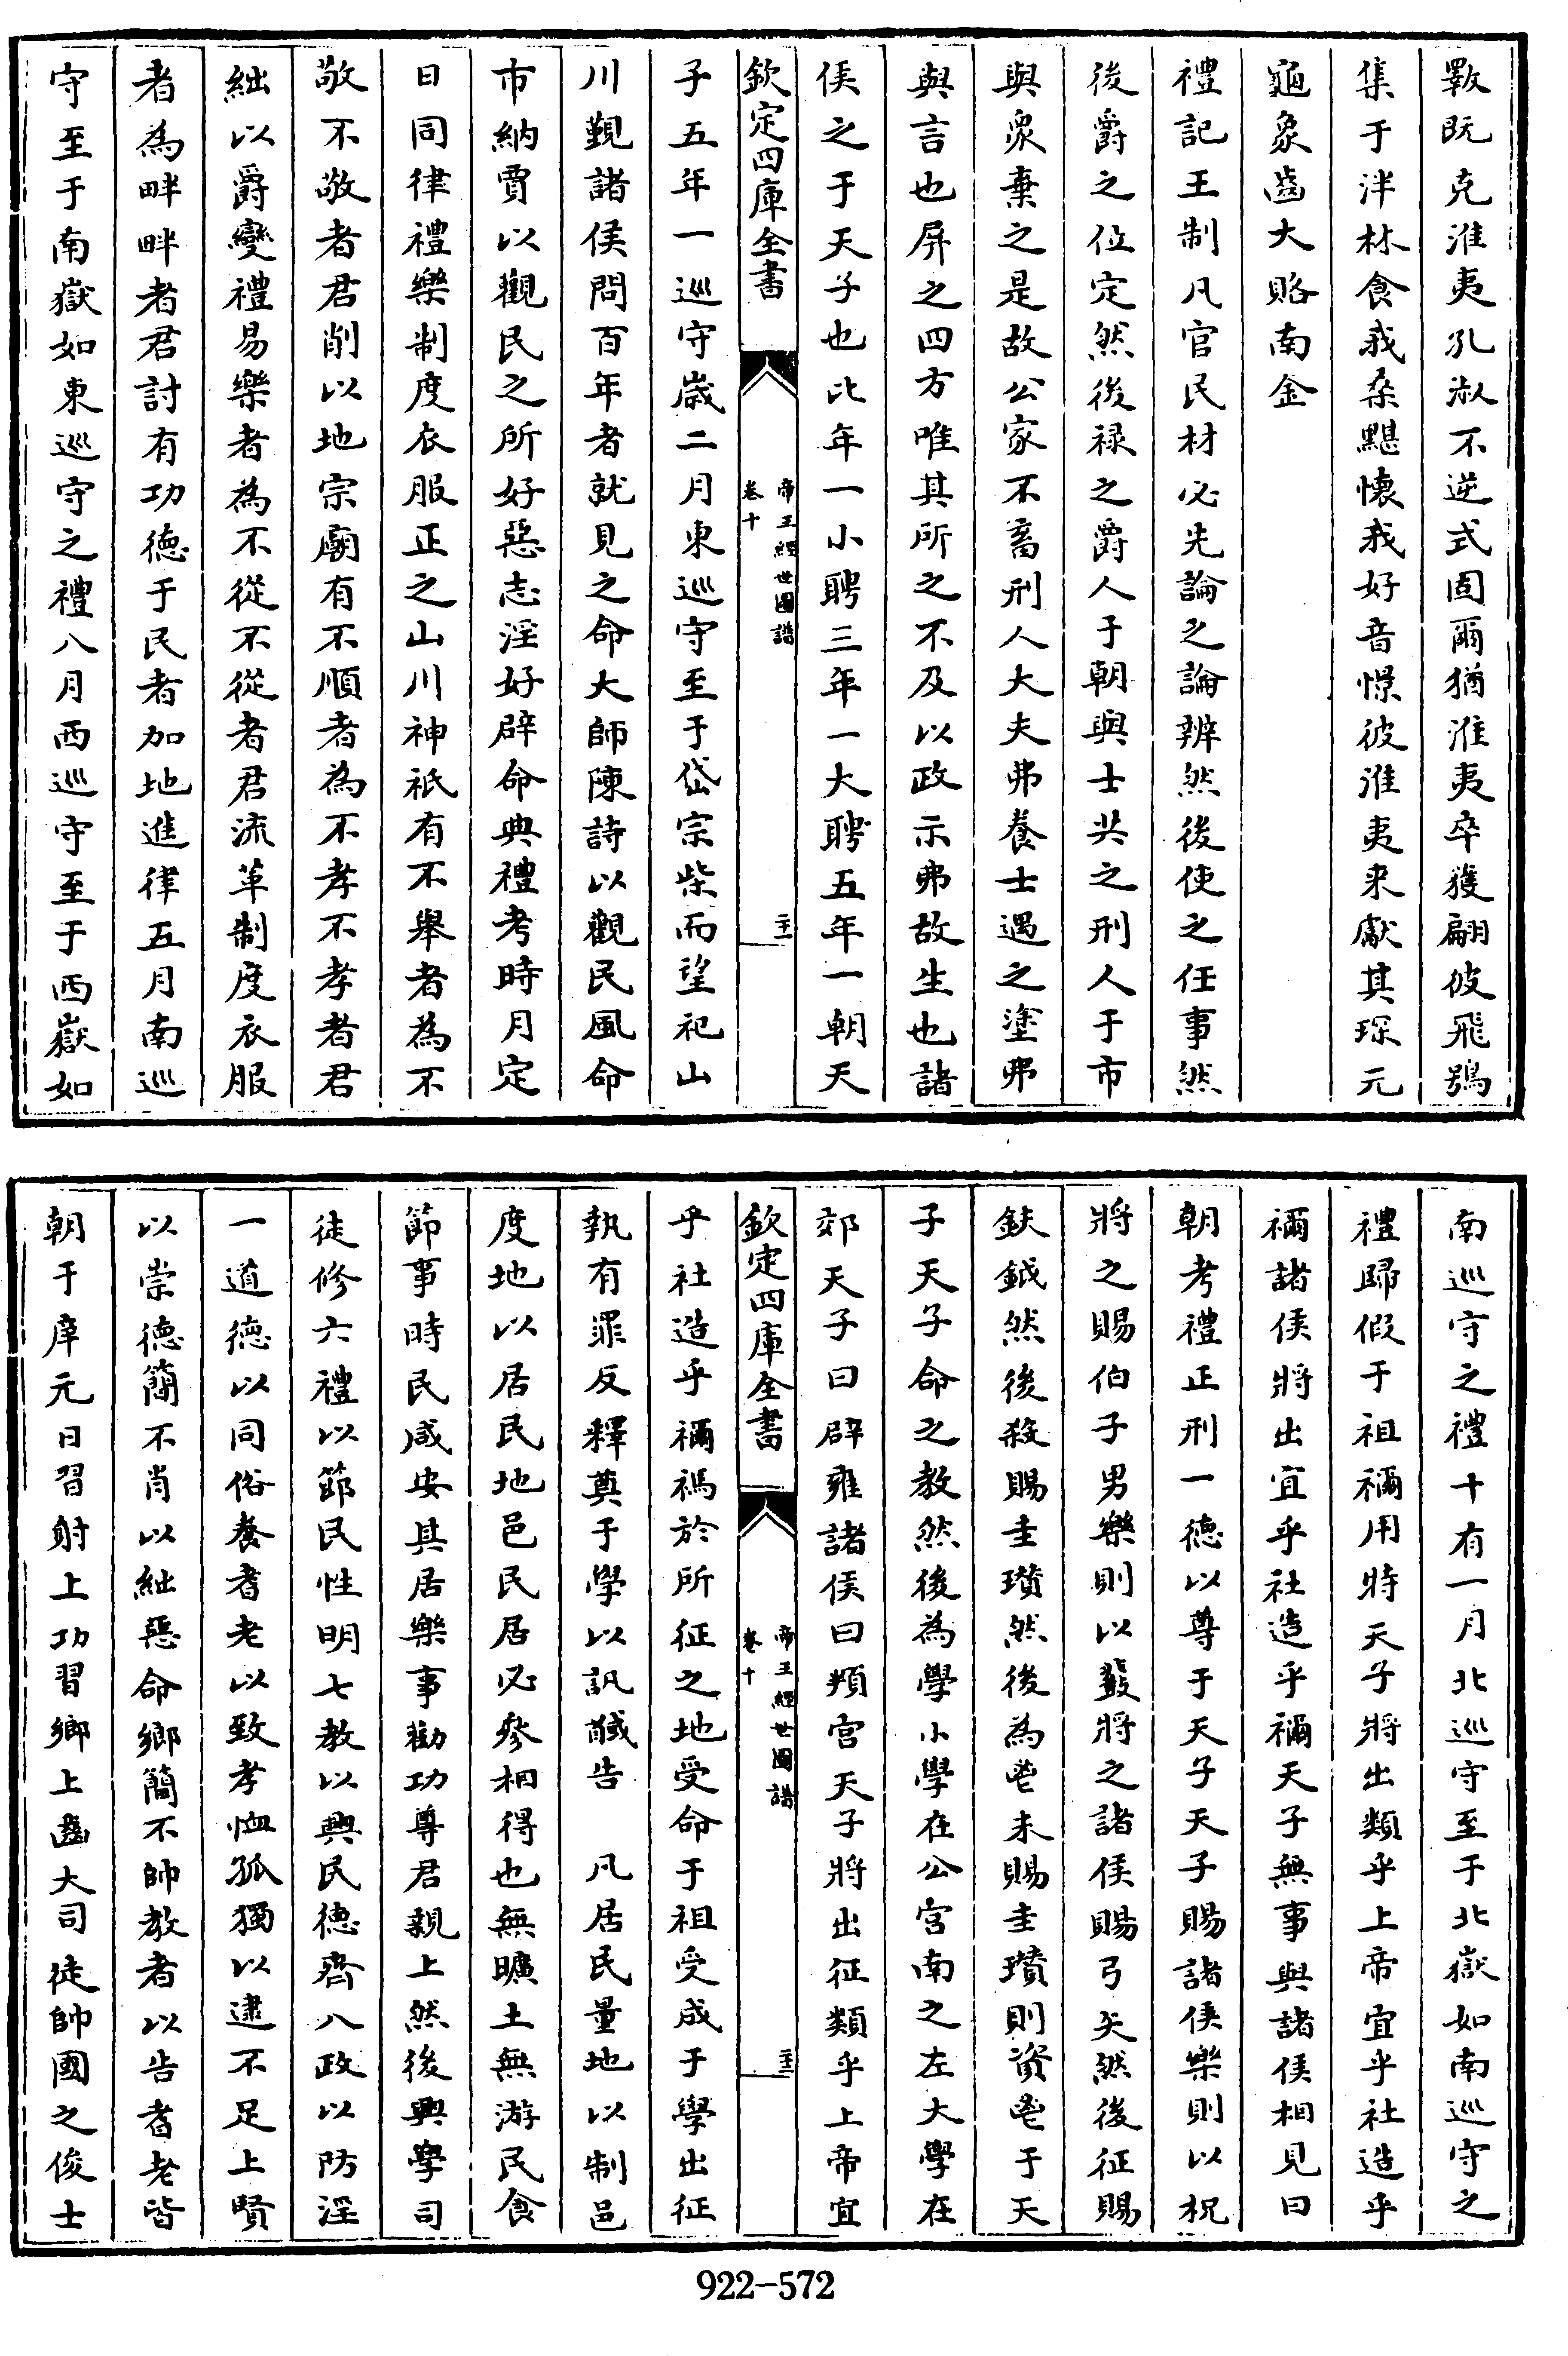 斁既克淮夷孔淑不逆式固爾猶淮夷卒獲翩彼飛鴞
集于泮林食我桑黮懷我好音憬彼淮夷来獻其琛元
龜象齒大賂南金
禮記王制凡官民材必先論之論辨然後使之任事然
後爵之位定然後禄之爵人于朝與士共之刑人于市
與衆棄之是故公家不畜刑人大夫弗養士遇之塗弗
與言也屏之四方唯其所之不及以政示弗故生也諸
侯之于天子也比年一小聘三年一大聘五年一朝天
欽定四庫全書
帝王經世圖譜
卷十
子五年一巡守歲二月東巡守至于岱宗柴而望祀山
川覲諸侯問百年者就見之命大師陳詩以觀民風命
市納賈以觀民之所好惡志淫好辟命典禮考時月定
日同律禮樂制度衣服正之山川神祇有不舉者為不
敬不敬者君削以地宗廟有不順者為不孝不孝者君
絀以爵變禮易樂者為不從不從者君流革制度衣服
者為畔畔者君討有功德于民者加地進律五月南巡
守至于南嶽如東巡守之禮八月西巡守至于西嶽如
南巡守之禮十有一月北巡守至于北嶽如南巡守之
禮歸假于祖禰用特天子將出類乎上帝宜乎社造乎
禰諸侯將出宜乎社造乎禰天子無事與諸侯相見曰
朝考禮正刑一德以尊于天子天子賜諸侯樂則以柷
將之賜伯子男樂則以鼗將之諸侯賜弓矢然後征賜
鈇鉞然後殺賜圭瓚然後為鬯未賜圭瓚則資鬯于天
子天子命之教然後為學小學在公宮南之左大學在
郊天子曰辟雍諸侯曰頖宮天子將出征類乎上帝宜
欽定四庫全書
帝王經世圖譜
卷十
乎社造乎禰禡於所征之地受命于祖受成于學出征
執有罪反釋奠于學以訊馘告 凡居民量地以制邑
度地以居民地邑民居必參相得也無曠土無游民食
節事時民咸安其居樂事勸功尊君親上然後興學司
徒修六禮以節民性明七教以興民德齊八政以防淫
一道德以同俗養耆老以致孝恤孤獨以逮不足上賢
以崇德簡不肖以絀惡命鄉簡不帥教者以告耆老皆
朝于庠元日習射上功習鄉上齒大司徒帥國之俊士
922-572